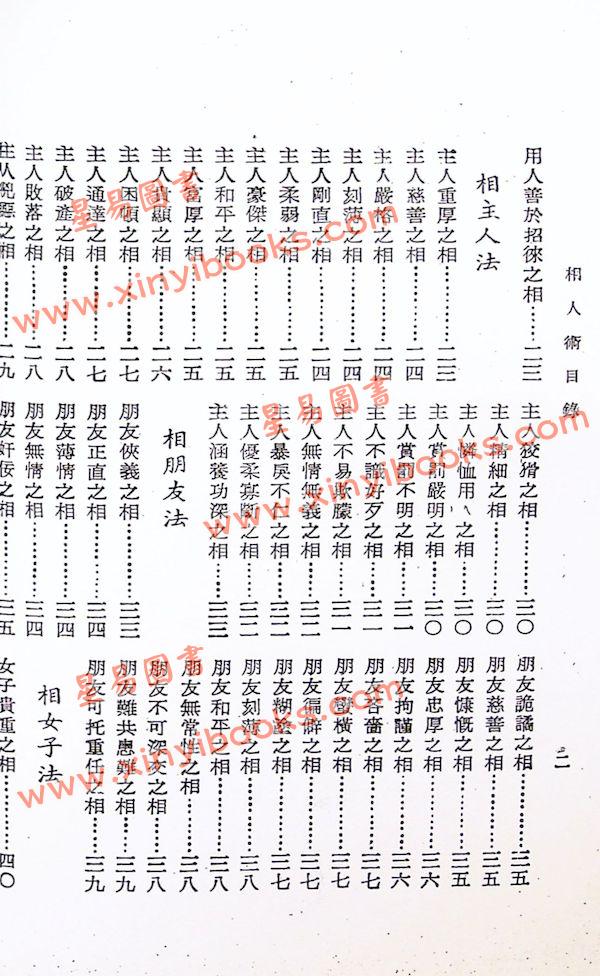 相人術目錄
二
用人善於招徠之相……二三
相主人法
主人重厚之相……二三
主人慈善之相……二四
主人嚴格之相……二四
主人刻薄之相……二四
主人剛直之相……二四
主人柔弱之相……二五
主人豪傑之相……二五
主人和平之相……二五
主人富厚之相……二五
主人貴顯之相……二六
主人困頓之相……二七
主人通達之相……二七
主人破產之相……二八
主人敗落之相……二八
主人之相……二九
主人狡猾之相……三〇
主人精細之相……三〇
主人憐恤用人之相……三〇
主人賞罰嚴明之相……三〇
主人賞罰不明之相……三一
主人不識好歹之相……三一
主人不易欺朦之相……三一
主人無情無義之相……三二
主人暴戾不仁之相……三二
主人優柔寡斷之相……三二
主人涵養功深之相……三三
相朋友法
朋友俠義之相……三三
朋友正直之相……三四
朋友薄情之相……三四
朋友無情之相……三四
朋友奸佞之相……三五
朋友詭譎之相……三五
朋友慈善之相……三五
朋友慷慨之相……三五
朋友忠厚之相……三六
朋友拘謹之相……三六
朋友吝嗇之相……三七
朋友蠻橫之相……三七
朋友偏僻之相……三七
朋友糊塗之相……三七
朋友刻薄之相……三八
朋友和平之相……三八
朋友無常性之相……三八
朋友不可深交之相……三八
朋友難共患難之相……三九
朋友可托重任之相……三九
相女子法
女子貴重之相……四〇
星易圖書
www.xinyibooks.com
星易圖書
www.xinyibooks.com
星易圖書
www.xinyibooks.com